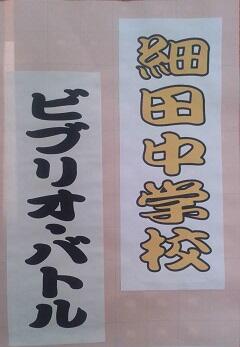 細田中学校
ビブリオ・バトル